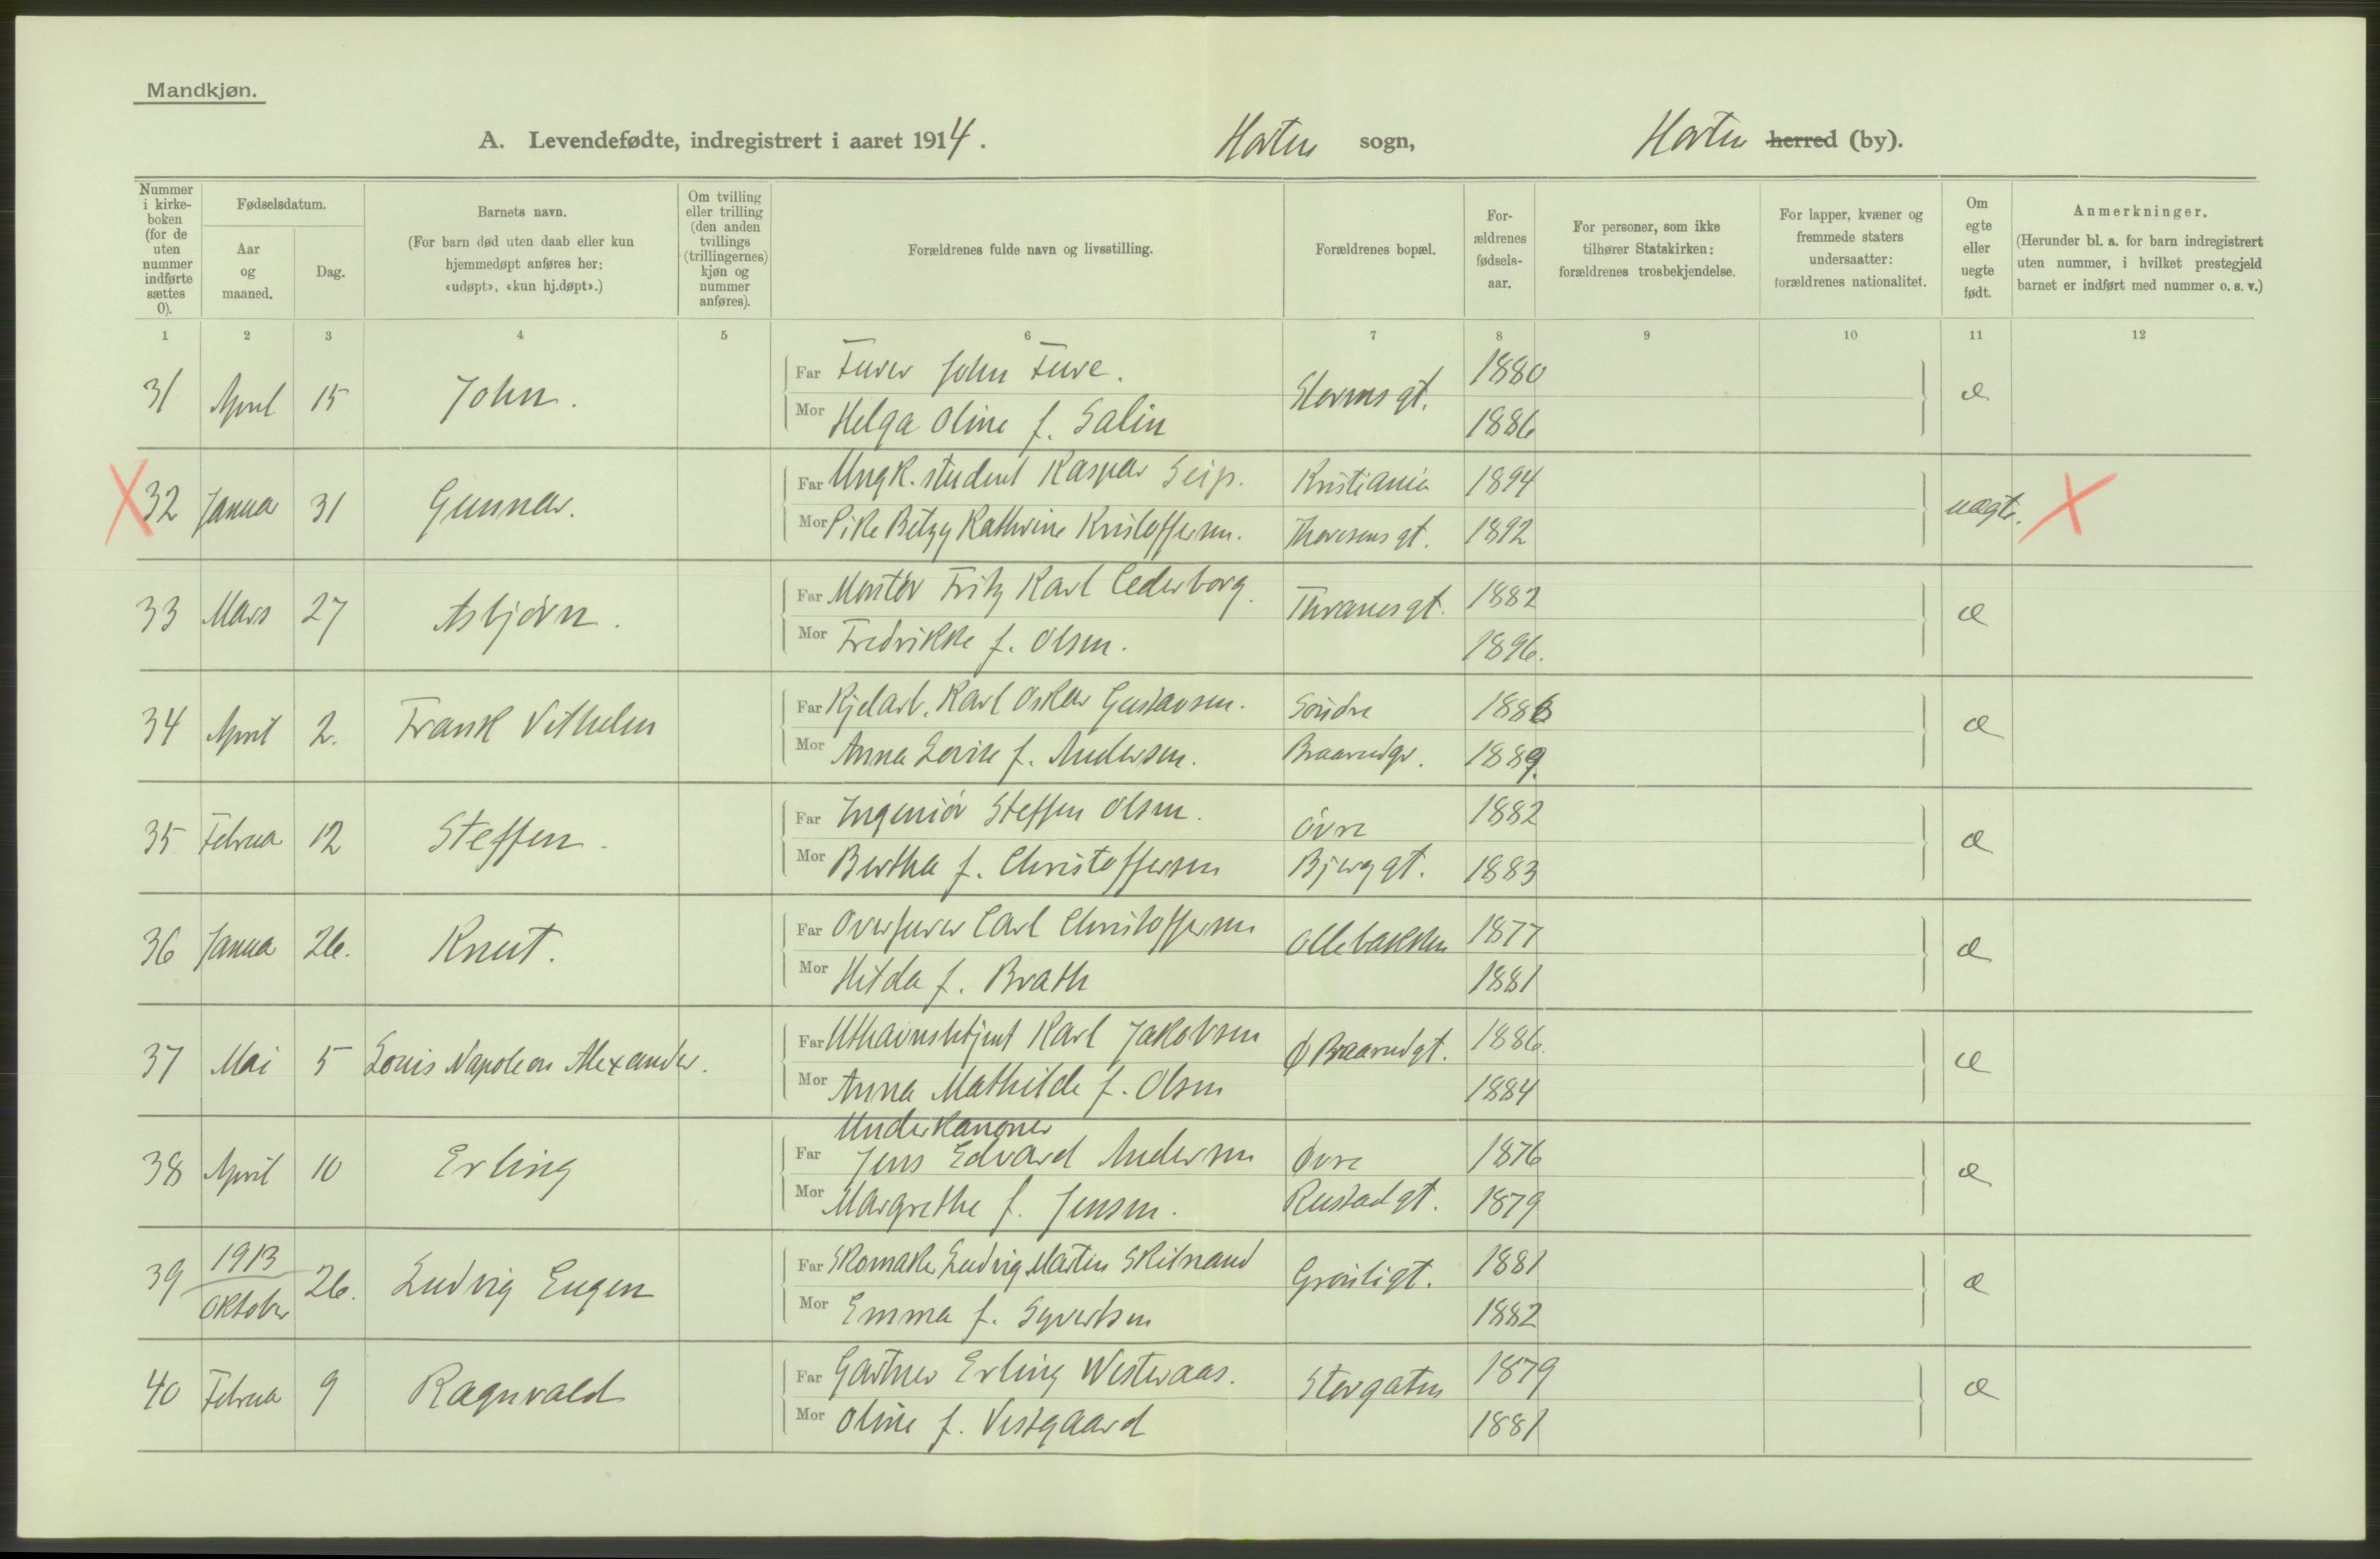 Mandkjøn.
A. Levendefødte, indregistrert i aaret 1914. Horten sogn, Horten herred (by).
Nummer i kirke-boken (for de uten nummer indførte sættes 0).
Fødselsdatum.
Aar og maaned.
Dag.
Barnets navn.
(For barn død uten daab eller kun hjemmedøpt anføres her: «udøpt», «kun hj.døpt».)
Om tvilling eller trilling (den anden tvillings (trillingernes) kjøn og nummer anføres).
Forældrenes fulde navn og livsstilling.
Forældrenes bopæl.
For-ældrenes fødsels-aar.
For personer, som ikke tilhører Statskirken: forældrenes trosbekjendelse.
For lapper, kvæner og fremmede staters undersaatter: forældrenes nationalitet.
Om egte eller uegte født.
Anmerkninger.
(Herunder bl. a. for barn indregistrert uten nummer, i hvilket prestegjeld barnet er indført med nummer o. s. v.)
1 2 3 4 5 6 7 8 9 10 11 12
31 April 15 John. Far Furer John Fure. Storms gt. 1880 æ
Mor Helga Oline f. Salin 1886
X 32 Januar 31 Gunnar. Far Ungk. student Kaspar Seip. Kristiania 1894 uægte. X
Mor Pike Betzy Kathrine Kristoffersen. Thoresens gt. 1892
33 Mars 27 Asbjørn. Far Montør Fritz Karl Cederborg. Thranesgt. 1882 æ
Mor Fredrikke f. Olsen. 1896.
34 April 2. Frank Vilhelm Far Kjelarb. Karl Oskar Gustavsen. Søndre 1886 æ
Mor Anna Lovise f. Andersen. Braarudgt. 1889.
35 Februar 12 Steffen. Far Ingeniør Steffen Olsen. Øvre 1882 æ
Mor Bertha f. Christoffersen Bjerggt. 1883
36 Januar 26. Knut. Far Overfurer Carl Christoffersen Ollebakken 1877 æ
Mor Hilda f. Brath 1881
37 Mai 5 Louis Napoleon Alexander. Far Karl Jakobsen Ø Braarudgt. 1886. æ
Mor Anna Mathilde f. Olsen 1884
Underkanoner
38 April 10 Erling Far Jens Edvard Andersen Øvre 1876 æ
Mor Margrethe f. Jensen. Rustadgt. 1879
39 1913 Oktober 26. Ludvig Eugen Far Skomaker Ludvig Martin Skilnand Grønligt. 1881 æ
Mor Emma f. Syvertsen 1882
40 Februar 9 Ragnvald Far Gartner Erling Westeraas. Storgaten 1879 æ
Mor Oline f. Vestgaard 1881